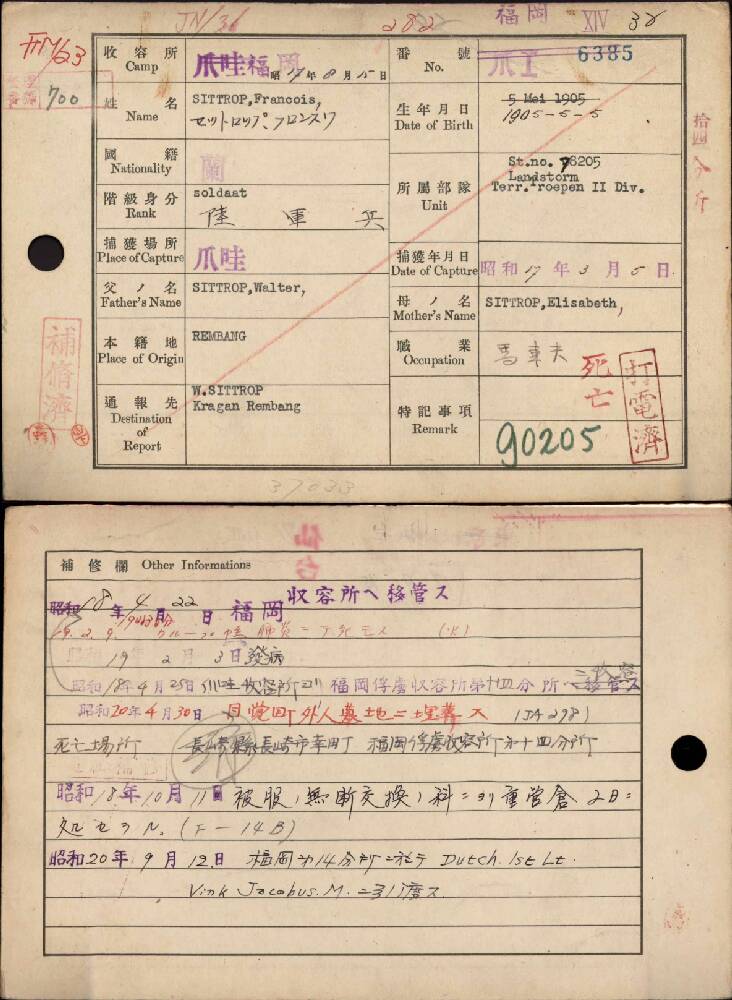 JN/31 282 福岡 XIV 38
FM/63
700
收容所 Camp 爪哇 福岡 昭17年8月15日
番號 No. 爪I 6385
姓名 Name SITTROP,Francois,
セットロップ フロンスワ
生年月日 Date of Birth 5 Mei 1905
1905-5-5
國籍 Nationality 蘭
階級身分 Rank soldaat
陸軍兵
所屬部隊 Unit St.no. 78205
Landstorm
Terr.Troepen II Div.
捕獲場所 Place of Capture 爪哇
捕獲年月日 Date of Capture 昭和17年3月5日
父ノ名 Father's Name SITTROP,Walter,
母ノ名 Mother's Name SITTROP,Elisabeth,
本籍地 Place of Origin REMBANG
職業 Occupation 馬車夫
通報先 Destination of Report W.SITTROP
Kragan Rembang
特記事項 Remark 死亡 打電濟
90205
拾四分所
補脩濟
37033
仙台
補修欄 Other Informations
昭和18年4月22日 福岡收容所ヘ移管ス
19.2.9.
昭和19年2月3日發病
昭和18年4月25日爪哇收容所ヨリ福岡俘虜收容所第十四分所ニ移管ス
昭和20年4月30日 外人墓地ニ埋葬ス (JA298)
死亡場所 長崎縣長崎市幸町 福岡俘虜收容所第十四分所
昭和18年10月11日 被服ノ無断交換ノ科ニヨリ重営倉2日ニ
処セラル. (F-14B)
昭和20年9月12日 福岡第14分所ニ於テ Dutch. 1st Lt.
Vink Jacobus. M. ニ引渡ス